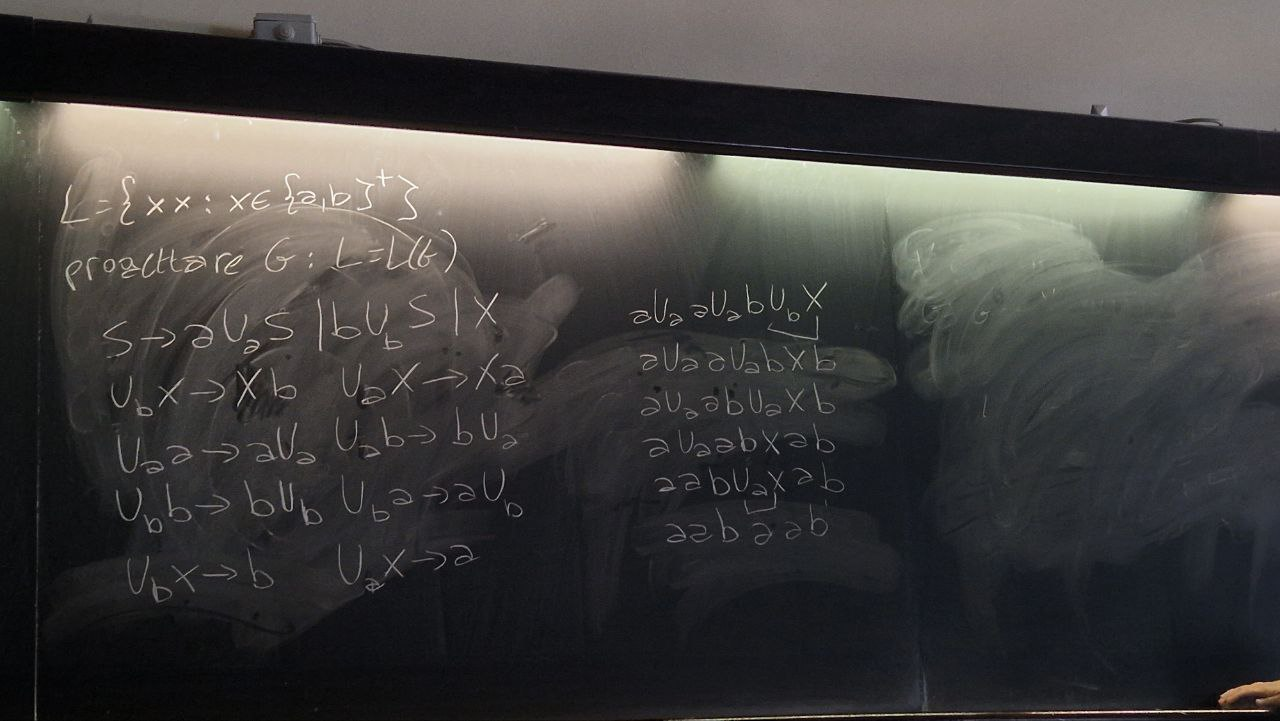 L={xx : x∈{a,b}⁺}
progettare G : L=L(G)
S→aUₐS | bU_bS | X
U_bX→Xb UₐX→Xa
Uₐa→aUₐ Uₐb→bUₐ
U_bb→bU_b U_ba→aU_b
U_bX→b UₐX→a
aUₐaUₐbU_bX
aUₐaUₐbXb
aUₐabUₐXb
aUₐabXab
aabUₐXab
aabaab